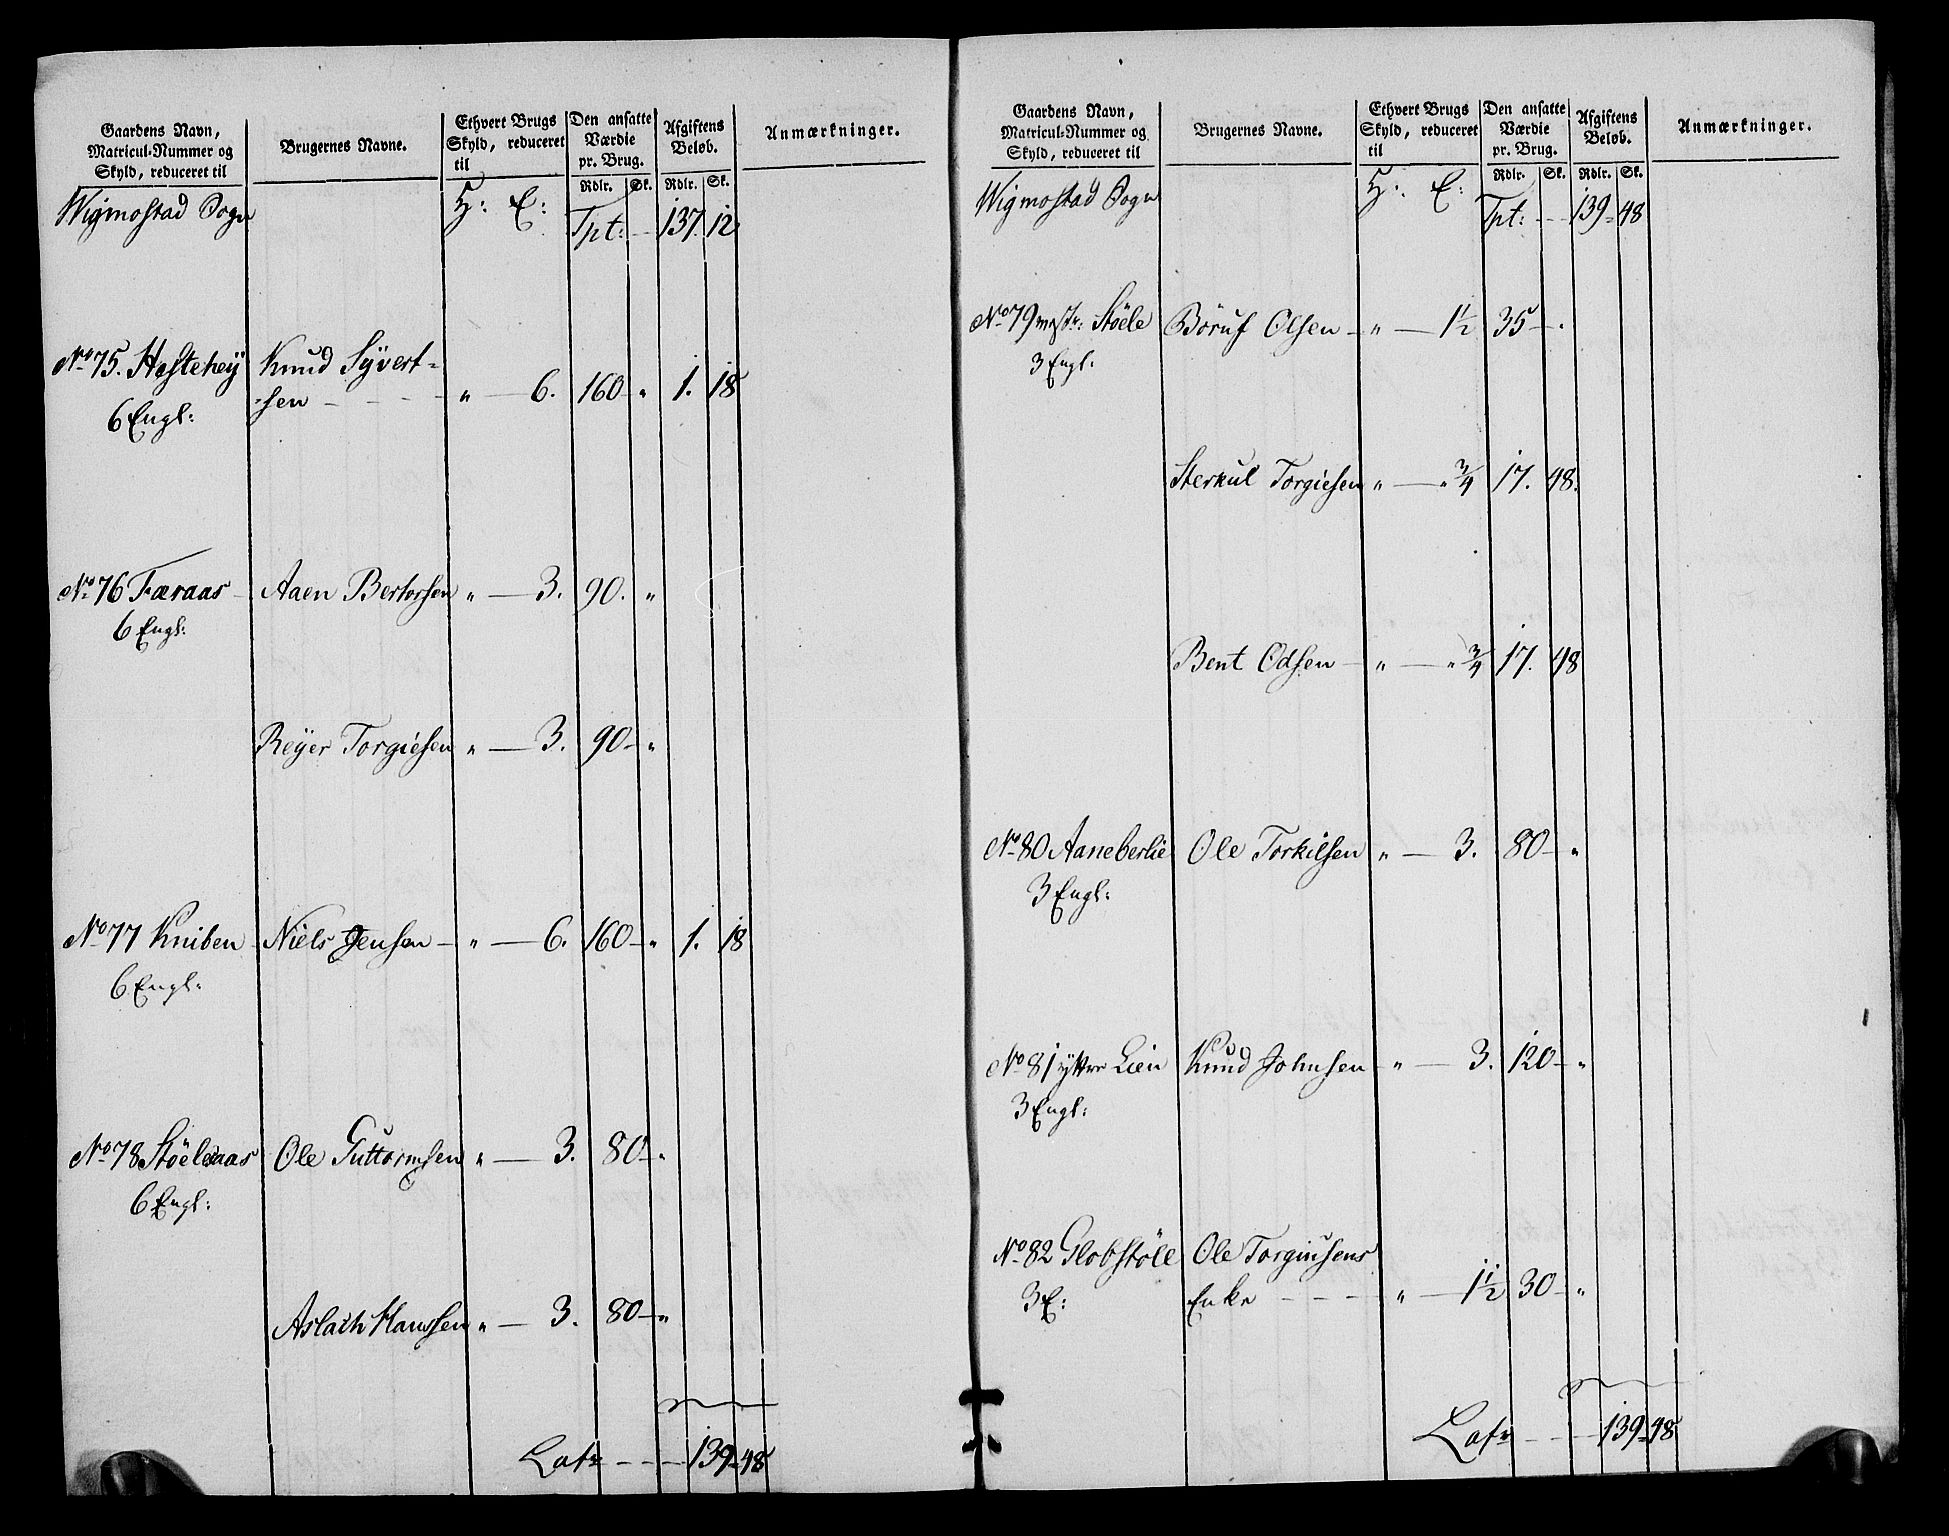 Gaardens Navn, Matricul-Nummer og Skyld, reduceret til
Brugernes Navne.
Ethvert Brugs Skyld, reduceret til
Den ansatte Værdie pr. Brug.
Afgiftens Beløb.
Anmærkninger.
Rdlr. Sk. Rdlr. Sk.
Wigmostad Sogn H: E: Tpt: — 137. 12
No 75. Hestehey Knud Syvert-
sen — — — „ — 6. 160 „ 1. 18
6 Engl:
No 76 Færaas Aaen Berthorsen „ — 3. 90. „
6 Engl:
Reyer Torgiesen „ — 3. 90 — „
No 77 Kniben Niels Jensen — „ — 6. 160 — „ 1. 18
6 Engl:
No 78 Støelsaas Ole Guttormsen „ — 3. 80 — „
6 Engl:
Aslach Hansen „ — 3. 80 — „
Latr — — — 139 - 48
Gaardens Navn, Matricul-Nummer og Skyld, reduceret til
Brugernes Navne.
Ethvert Brugs Skyld, reduceret til
Den ansatte Værdie pr. Brug.
Afgiftens Beløb.
Anmærkninger.
Rdlr. Sk. Rdlr. Sk.
Wigmostad Sogn H: E: Tpt: — 139 - 48
No 79 Støele Böruf Olsen — „ — 1½ 35 — .
3 Engl:
Sterkul Torgiesen „ — „ ¾ 17. 48.
Bent Odsen — „ — „ ¾ 17. 48
No 80 Aaneberlie Ole Torkilsen „ — 3. 80 — „
3 Engl:
No 81 yttre Lien Knud Johnsen — „ — 3. 120 — „
3 Engl:
No 82 Globstöle Ole Torgiusens
Enke — — — „ — 1½ 30 — „
3 E:
Latr — — — 139 - 48